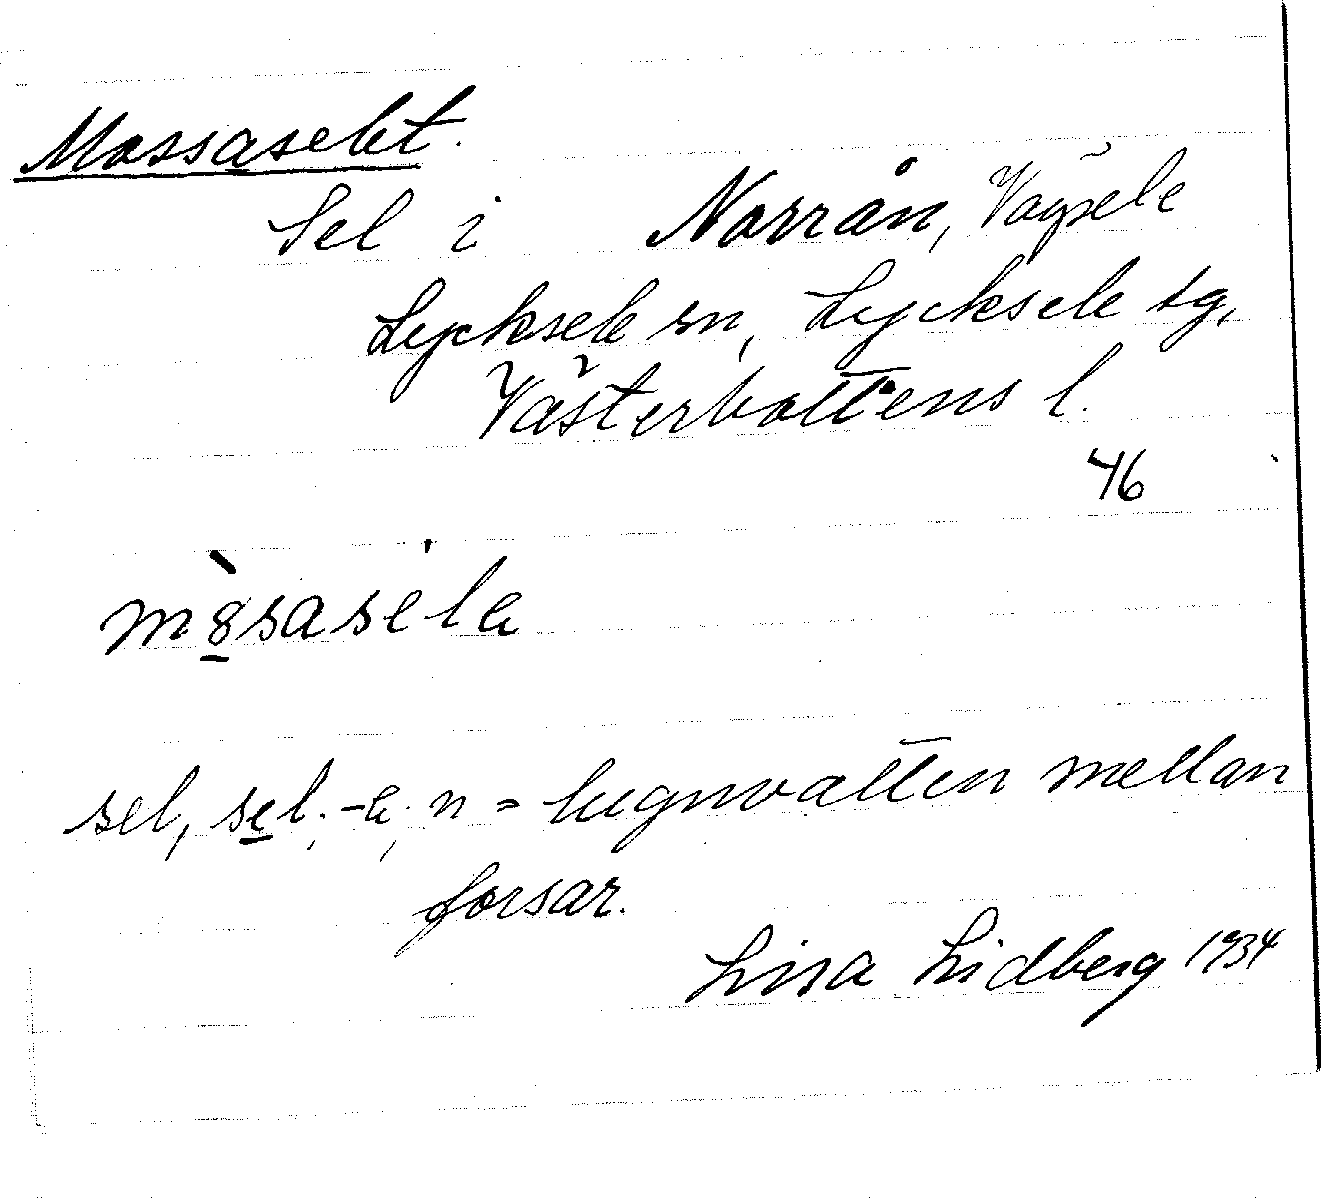 Mossaselet.
Sel i Norrån, Vägsele
Lycksele sn, Lycksele tg,
Västerbottens l.
46
sel, sel; -e; n = lugnvatten mellan
forsar.
Lisa Lidberg 1934